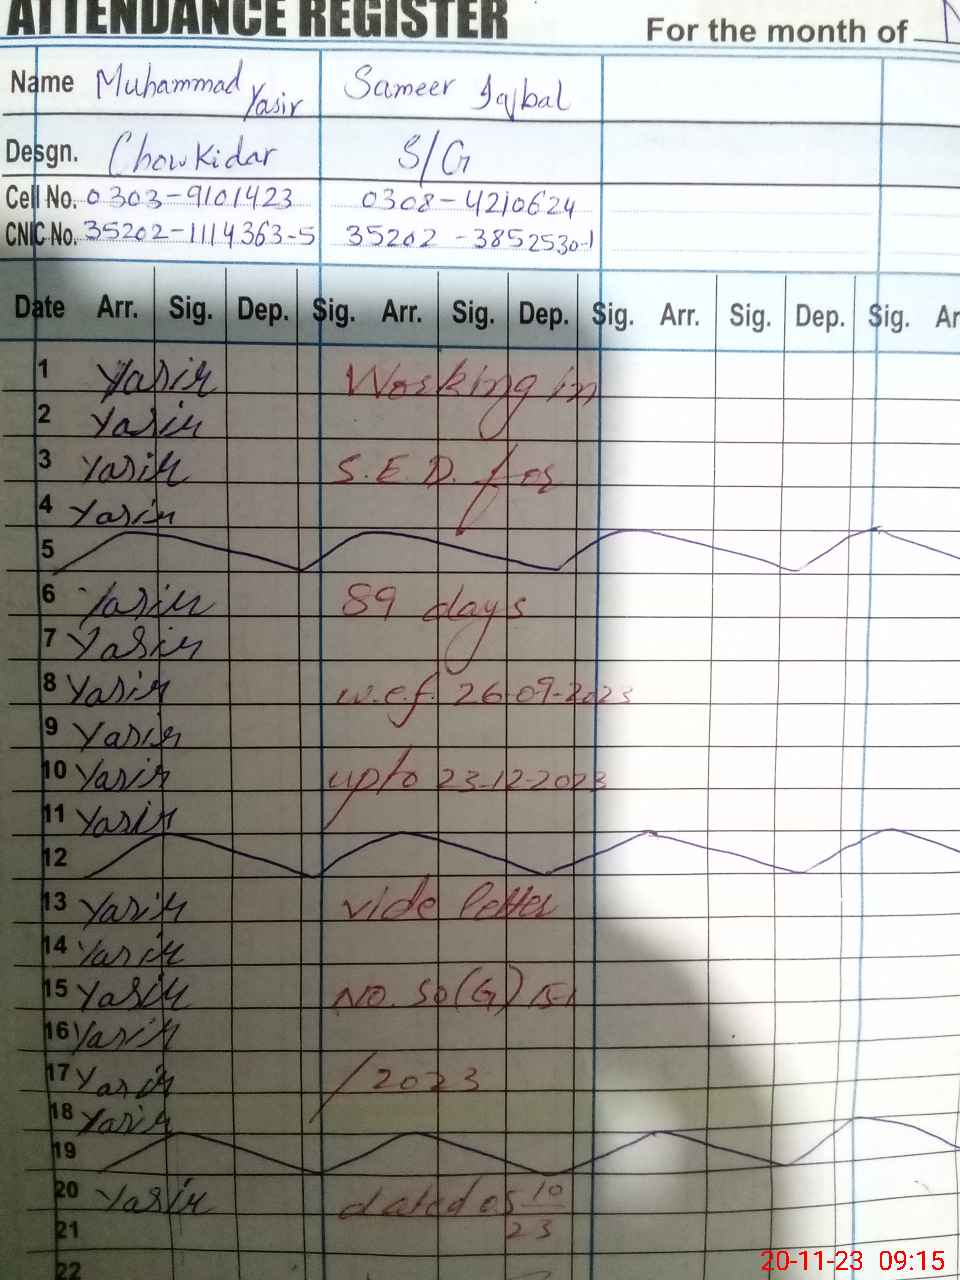 ATTENDANCE REGISTER For the month of
Name Muhammad Yasir Sameer Iqbal
Desgn. Chowkidar S/G
Cell No. 0303-9101423 0308-4210624
CNIC No. 35202-1114363-5 35202-3852530-1
Date Arr. Sig. Dep. Sig. Arr. Sig. Dep. Sig. Arr. Sig. Dep. Sig. Ar
1 Yasir Working in
2 Yasir
3 Yasir S.E.D. for
4 Yasir
5
6 Yasir 89 days
7 Yasir
8 Yasir w.e.f. 26-09-2023
9 Yasir
10 Yasir upto 23-12-2023
11 Yasir
12
13 Yasir vide letter
14 Yasir
15 Yasir NO. SO(G)
16 Yasir
17 Yasir /2023
18 Yasir
19
20 Yasir dated 05 10
21 23
22
20-11-23 09:15